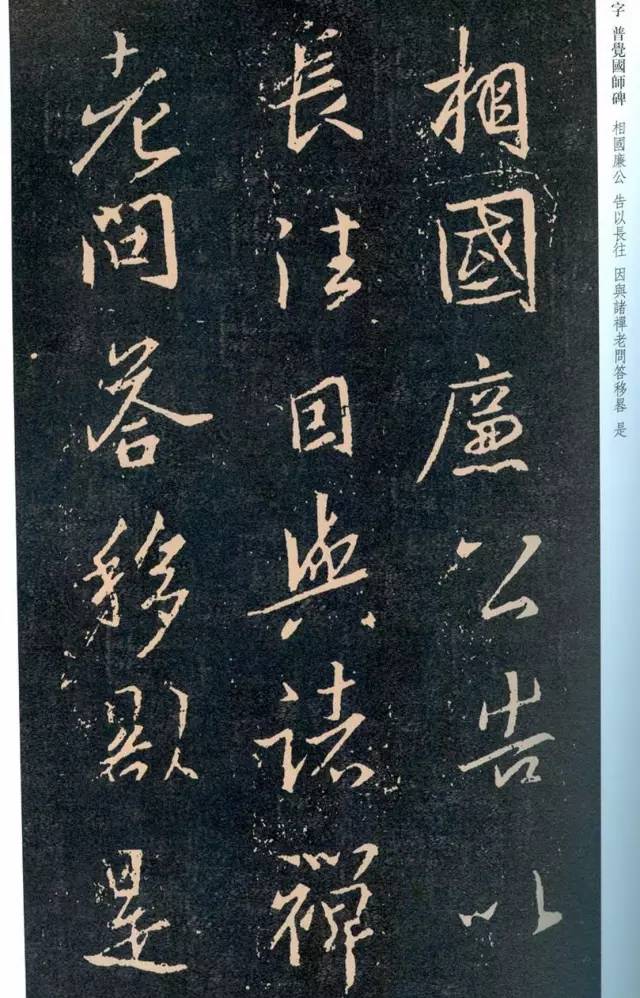 字 普覺國師碑 相國廉公 告以長往 因與諸禪老問答移晷 是
相國廉公告以
長往因與諸禪
老問荅移晷是